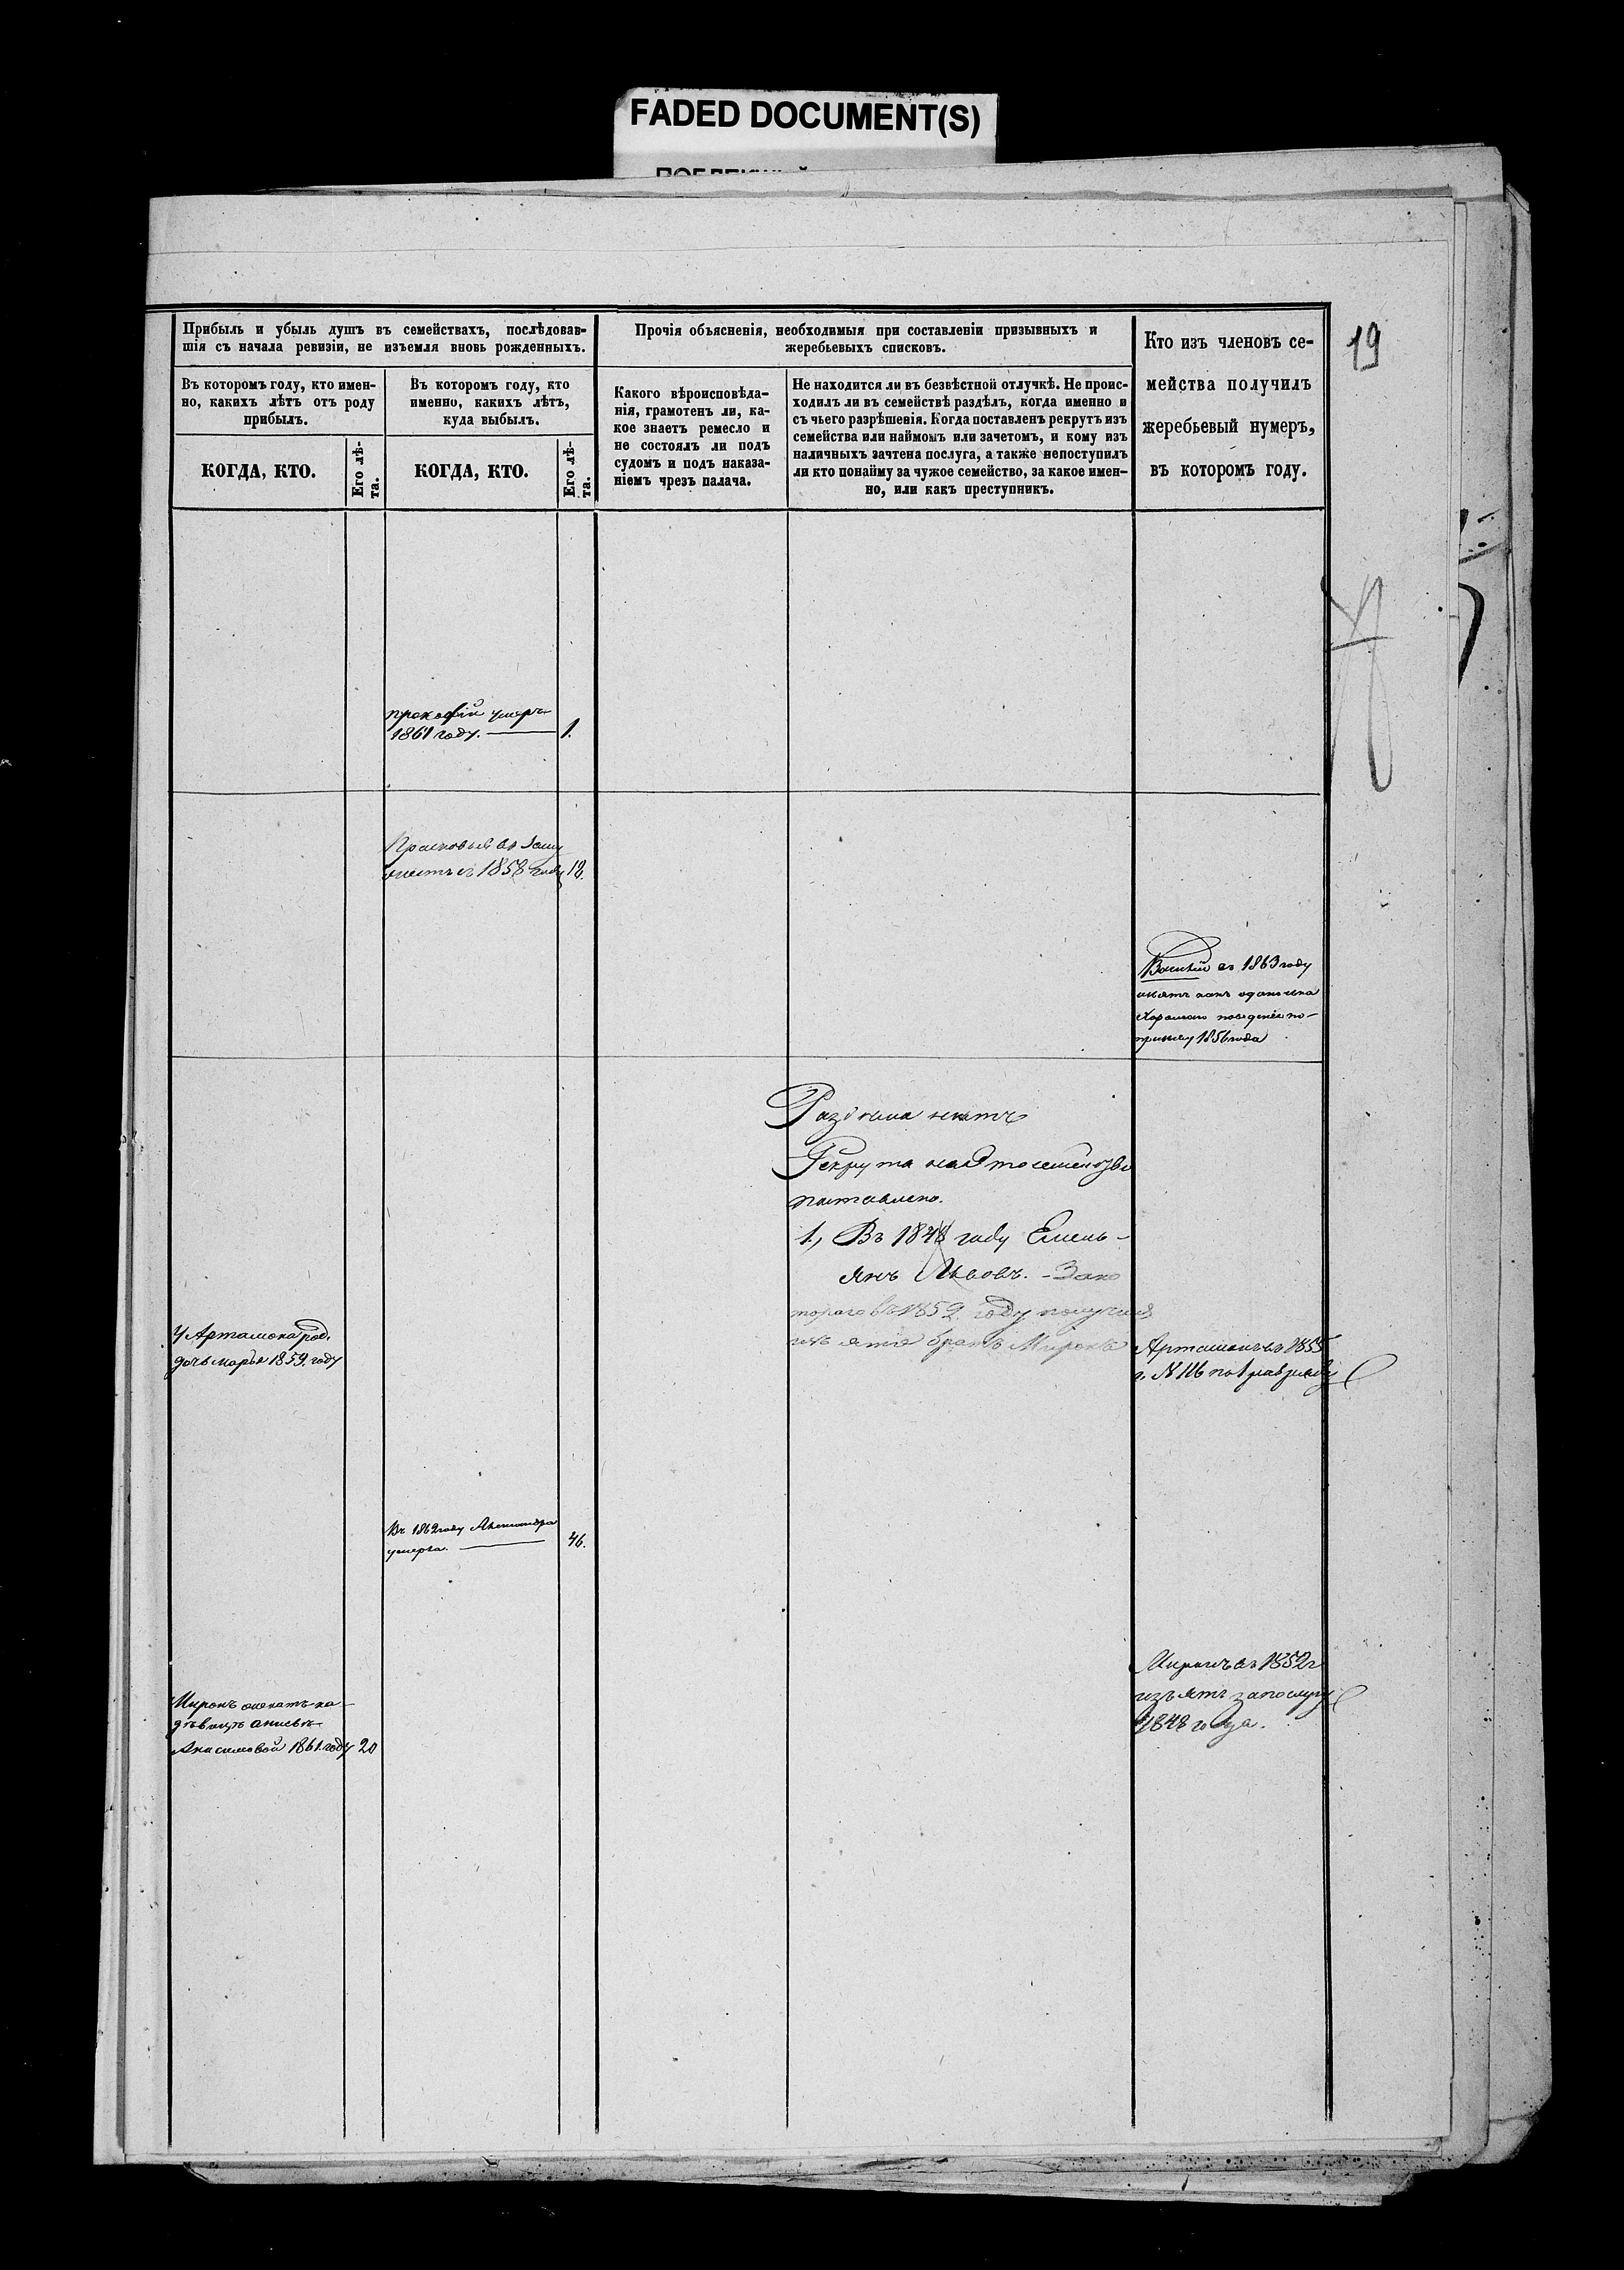 FADED DOCUMENT(S)
19
Прибыль и убыль душъ въ семействахъ, послѣдовав-
шія съ начала ревизіи, не изъемля вновь рожденныхъ.
Прочія объясненія, необходимыя при составленіи призывныхъ и
жеребьевыхъ списковъ.
Кто изъ членовъ се-
мейства получилъ
жеребьевый нумеръ,
въ которомъ году.
Въ которомъ году, кто имен-
но, какихъ лѣтъ отъ роду
прибылъ.
Въ которомъ году, кто
именно, какихъ лѣтъ,
куда выбылъ.
Какого вѣроисповѣда-
нія, грамотенъ ли, ка-
кое знаетъ ремесло и
не состоялъ ли подъ
судомъ и подъ наказа-
ніемъ чрезъ палача.
Не находится ли въ безвѣстной отлучкѣ. Не проис-
ходилъ ли въ семействѣ раздѣлъ, когда именно и
съ чьего разрѣшенія. Когда поставленъ рекрутъ изъ
семейства или наймомъ или зачетомъ, и кому изъ
наличныхъ зачтена послуга, а также непоступилъ
ли кто понайму за чужое семейство, за какое имен-
но, или какъ преступникъ.
КОГДА, КТО.
Его лѣ-
та.
КОГДА, КТО.
Его лѣ-
та.
прокофій умеръ
1861 году. 1.
Прасковья въ заму
1858 году 18.
Василій въ 1863 году
изъятъ какъ
хорошаго поведенія по
1856 года
Раздѣла нѣтъ
Рекрута
поставлено.
1., Въ 1848 году Емель-
янъ Львовъ. - За ко
тораго въ 1852 году получилъ
изъятіе братъ Миронъ
У Артамона род.
дочь марья 1859. году
Артамонъ въ 1855
г. N 116 по 1 разряду
Въ 1862 году Александра
умерла. 46.
Миронъ въ 1852 г
изъятъ за послугу
1848 года.
Миронъ женатъ на
дѣвицѣ анисьѣ
Анисимовой 1861. году 20